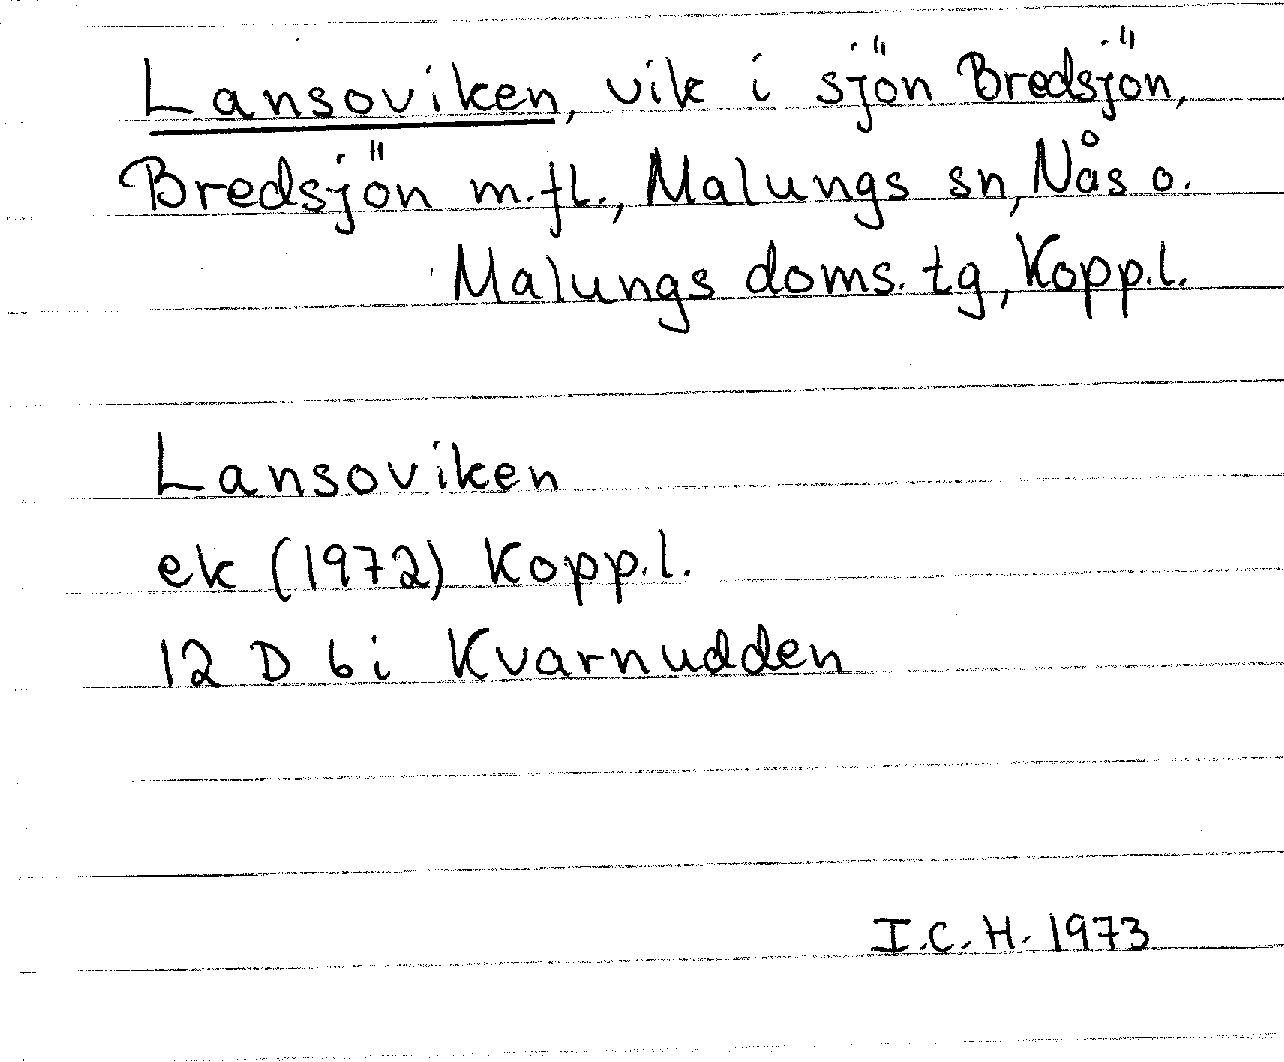 Lansoviken, vik i sjön Bredsjön,
Bredsjön m.fl., Malungs sn, Nås o.
Malungs doms. tg, Kopp.l.
Lansoviken
ek (1972) Kopp.l.
12 D 6i Kvarnudden
I.C.H. 1973